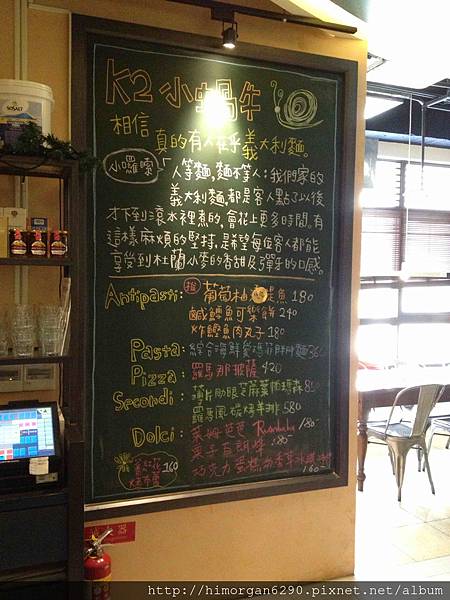 K2 小蝸牛
相信 真的有人在乎義大利麵。
小囉嗦
「人等麵,麵不等人:我們家的
義大利麵,都是客人點了以後
才下到滾水裡煮的,會花上更多時間,有
這樣麻煩的堅持,是希望每位客人都能
享受到杜蘭小麥的香甜及彈牙的口感。
Antipasti: 推 葡萄柚 鯷魚 180
鹹鱈魚可樂餅 240
炸鱈魚肉丸子 180
Pasta: 綜合海鮮
Pizza: 羅馬那披薩 420
Secondi:
羅馬風燒烤羊排 580
Dolci: 萊姆芭芭 Rumbaba 180
栗子白朗峰 180
巧克力蛋糕 香草冰 160
160
滅火器
SOSALT
http://himorgan6290.pixnet.net/album